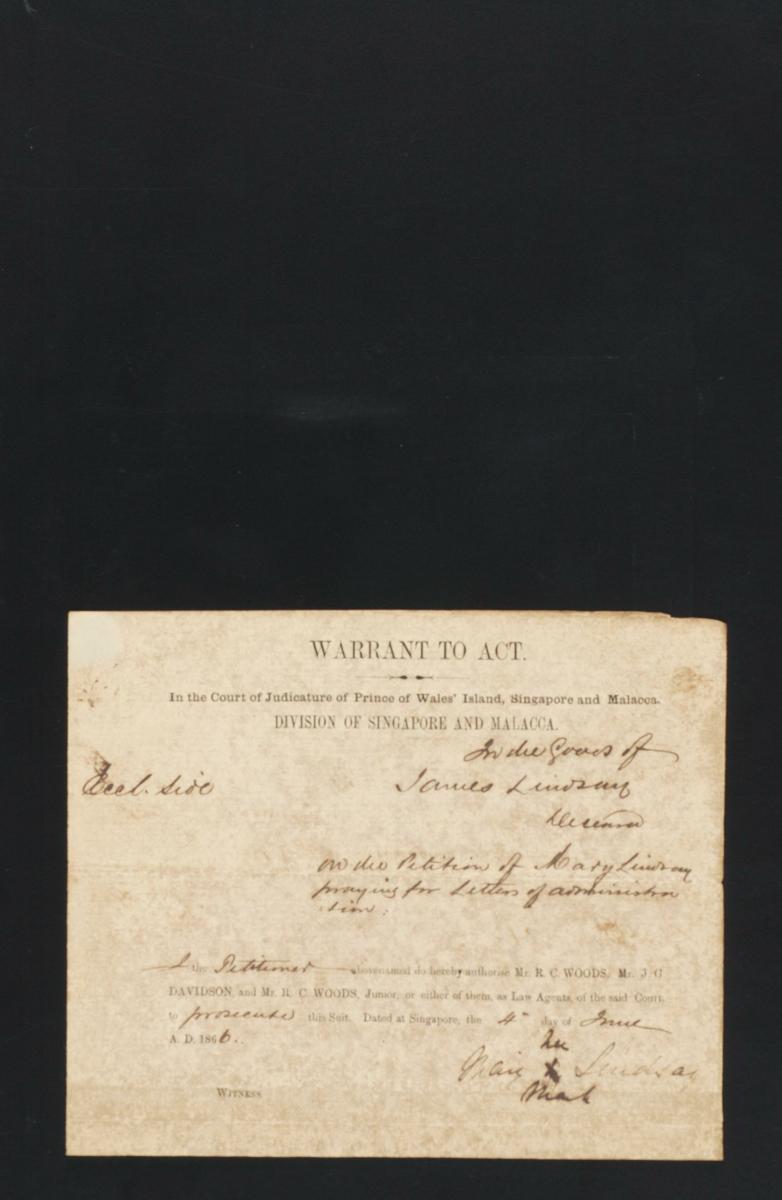 WARRANT TO ACT.
In the Court of Judicature of Prince of Wales' Island, Singapore and Malacca.
DIVISION OF SINGAPORE AND MALACCA.
In the Goods of
Eccl. Side
James Lindsay
Deceased
on the Petition of Mary Lindsay
praying for Letters of administra
tion.
I the Petitioner abovenamed do hereby authorise Mr. R. C. WOODS, Mr. J. G
DAVIDSON, and Mr. R. C. WOODS, Junior, or either of them, as Law Agents, of the said Court,
to prosecute this Suit. Dated at Singapore, the 4th day of June
A. D. 1866.
her
Mary X Lindsay
Mark
WITNESS